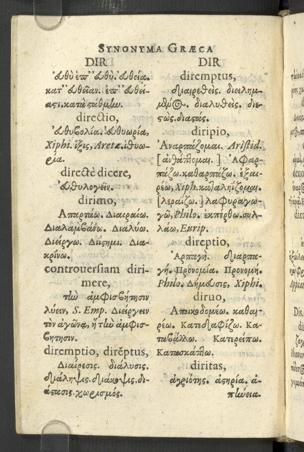 SYNONYMA GRÆCA
DIR
εὐθὺ ἐπ' εὐθὺ. εὐθεῖα.
κατ' εὐθεῖαν. ἐπ' εὐθεί-
ας.
directio,
εὐθυβολία. εὐθυωρία.
Xiphi. ἕξις, Aretæ. ἰθυω-
ρία.
directè dicere,
εὐθυλογεῖν.
dirimo,
Ἀπαρτάω. Διαιράω.
Διαλαμβάνω. Διαλύω.
Διείργω. Διΐστημι. Δια-
κρίνω.
controuersiam diri-
mere,
τὴν ἀμφισβήτησιν
λύειν, S. Emp. Διείργειν
τὸν ἀγῶνα, ἢ τὴν ἀμφισ-
βήτησιν.
diremptio, direptus,
Διαίρεσις. διάλυσις.
διάληψις. διάκοψις. δι-
άστασις. χωρισμός.
DIR
diremptus,
διαιρεθείς. διειλημ-
μένος. διαλυθείς. διε-
στώς.
diripio,
Ἀναρπάζομαι. Aristid.
Ἀφαρ-
πάζω. καθαρπάζω. ἐξαι-
ρέω, Xiph. καταληΐζομαι.
λαφυραγω-
γῶ, Philo. ἐκπέρθω. συλ-
λάω, Eurip.
direptio,
Ἁρπαγή. διαρπα-
γή. Προνομία. Προνομή.
Philo. Δήμευσις. Xiphi.
diruo,
Ἀποικοδομέω. καθαι-
ρέω. Κατεδαφίζω. Κα-
ταβάλλω. Κατερείπω.
Κατασκάπτω.
diritas,
ἀγριότης. ἀπηνία. ἀ-
πήνεια.